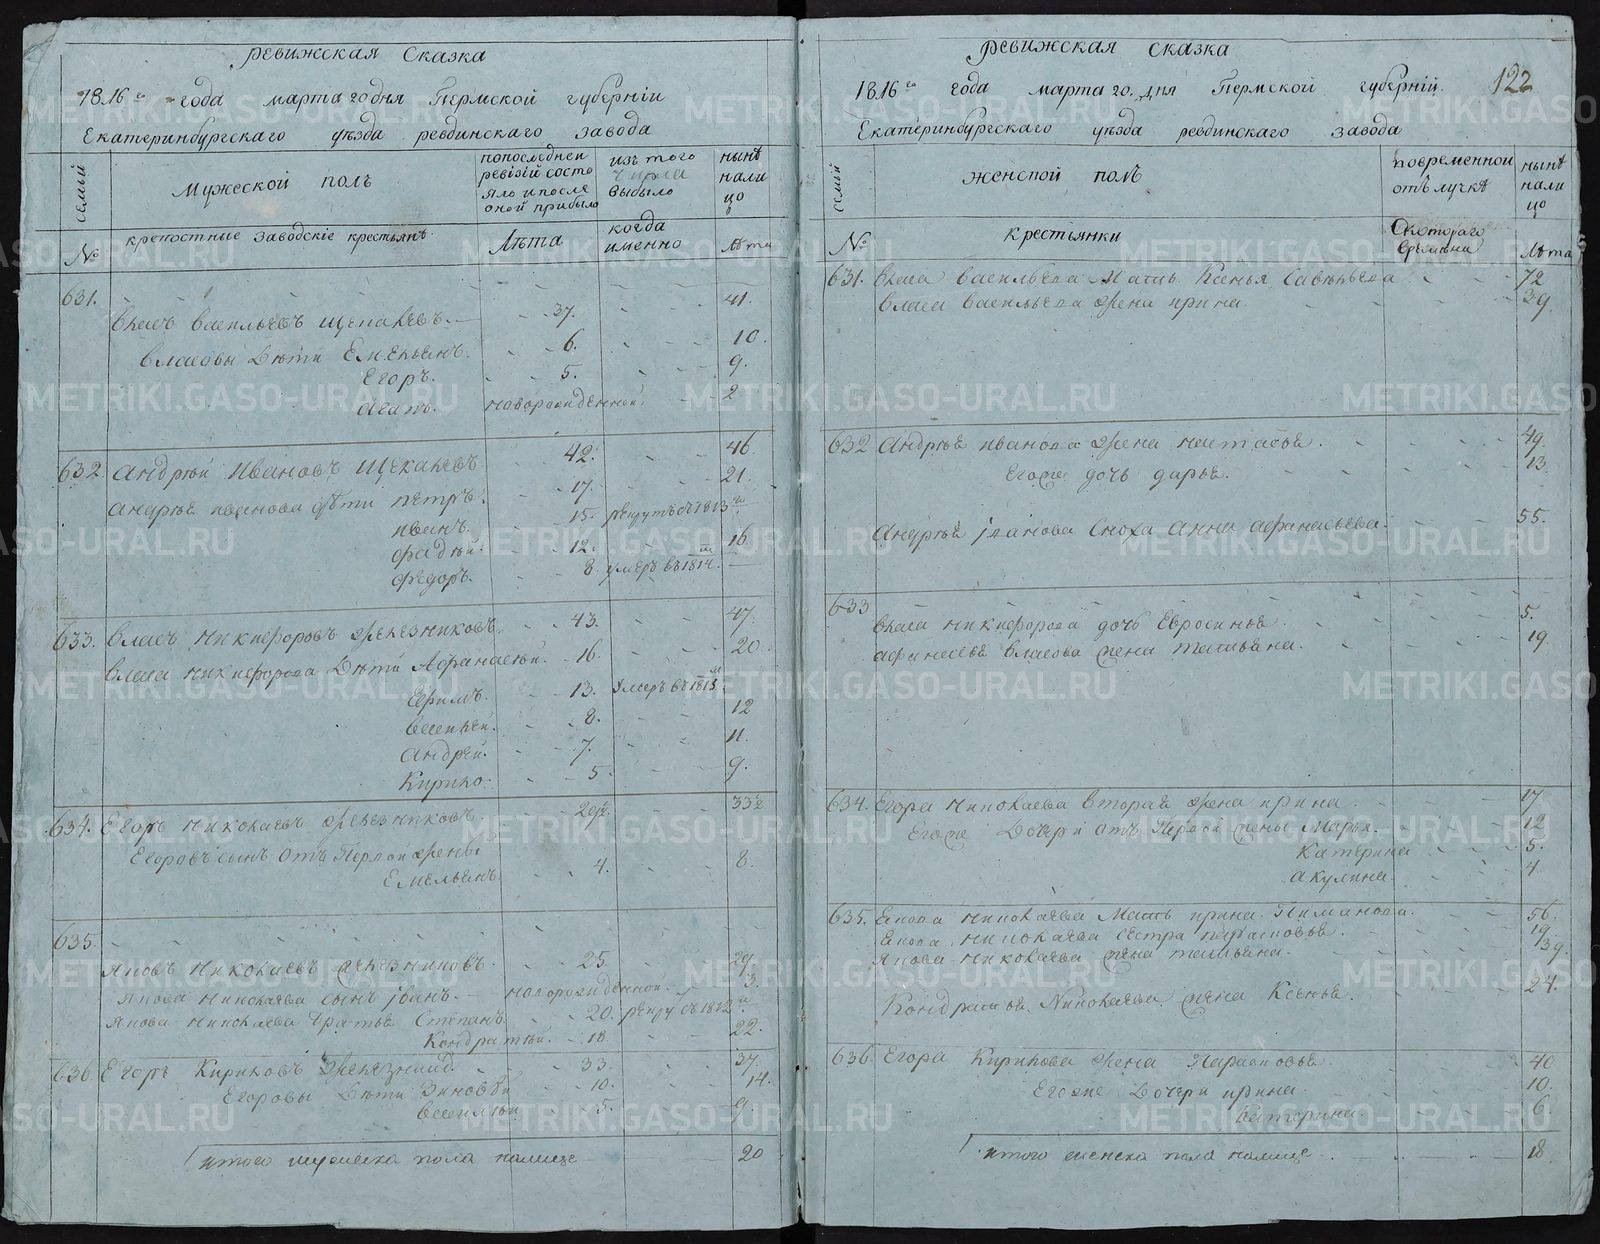 ревижская сказка
1816го года марта го дня Пермской губернии
Екатеринбургскаго уѣзда ревдинскаго завода
семьи
Мужеской полъ
попоследней ревизїи состояло и после оной прибыло
изъ того числа выбыло
нынѣ налицо
№
крепостные заводскіе крестьянъ
Лѣта
когда именно
лѣта
631. 41.
Власъ васильевъ щекалевъ 37.
власовы дѣти Емельянъ. 6. 10.
Егоръ. 5. 9.
Агапъ. новорожденной 2
632 Андрѣй Ивановъ Щекалевъ 42. 46
андрѣя иванова дѣти петръ. 17. 21.
иванъ. 15. рекрутъ съ 1813го
фадѣй. 12. 16
федоръ. 8 умеръ въ 1814.м
633. власъ никифоровъ железниковъ. 43. 47.
власа никифорова дѣти Афанасей. 16. 20
Ефимъ. 13. умеръ въ 1813.м
василей. 8. 12
андрей. 7. 11.
Кирило. 5. 9.
634. Егоръ николаевъ железниковъ. 29½ 33½
Егоровъ сынъ отъ первой жены
Емельянъ 4. 8.
635.
яковъ николаевъ железниковъ. 25. 29.
якова николаева сынъ іванъ. новорожденной. 3.
якова николаева братья Степанъ. 20. рекру съ 1812го
Кондратѣй. 18. 22.
636. Егоръ Кириковъ железник. 33. 37.
Егоровы дѣти Зиновѣй 10. 14.
василѣй 5. 9
итого мужеска пола налице 20
ревижская сказка
122
1816го года марта го дня Пермской губернїй
Екатеринбургскаго уѣзда ревдинскаго завода
семьи
женской полъ
повременной отълучкѣ
нынѣ налицо
№
крестьянки
Скотораго времѣни
лѣта
631. власа васильева мать Ксенья Савельева 72
власа васильева жена ирина 39.
632 андрѣя иванова жена настасья. 49.
Егоже дочь дарья. 13.
андрѣя іванова сноха анна афанасьева. 55.
633
власа никифорова дочь Евросинья. 5.
афанасья власова жена татьяна. 19.
634. Егора николаева вторая жена ирина 17.
Егоже дочери отъ первой жены марья. 12
Катерина 5.
акулина 4
635. якова николаева мать ирина 56.
якова николаева сестра парасковья. 19.
якова николаева жена татьяна. 39.
Кондратья Николаева жена Ксенья. 24.
636. Егора Кирикова жена парасковья. 40
Егоже дочери ирина. 10.
катерина 6.
итого женска пола налице 18
METRIKI.GASO-URAL.RU